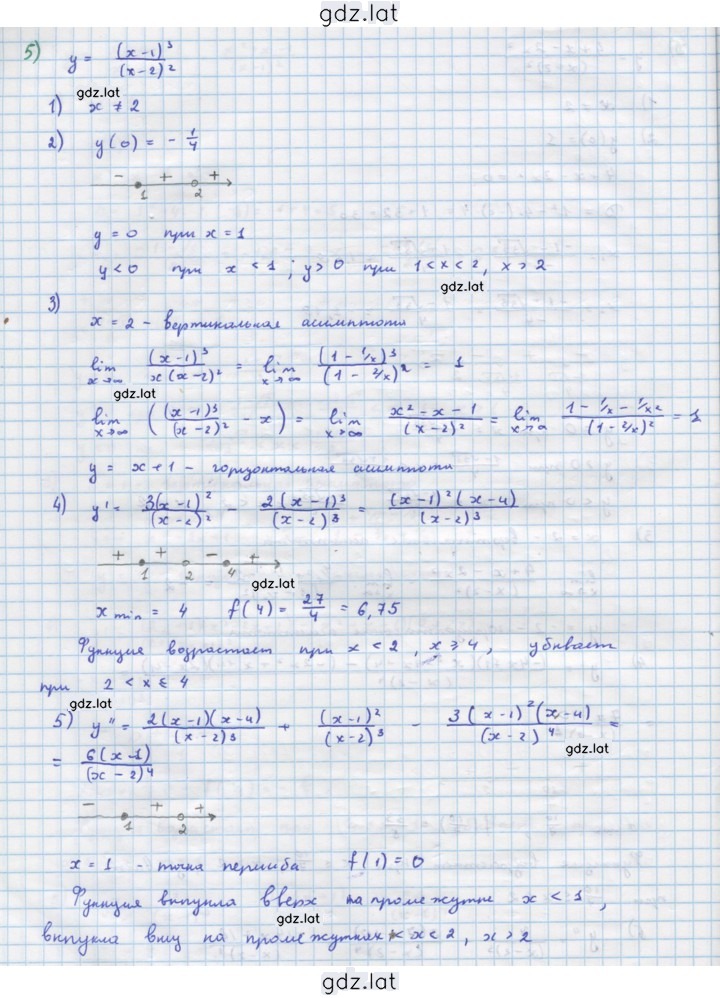 gdz.lat
5) y = (x-1)³/(x-2)²
gdz.lat
1) x ≠ 2
2) y(0) = -1/4
- + +
1 2
y = 0 при x = 1
y < 0 при x < 1 ; y > 0 при 1 < x < 2, x > 2
gdz.lat
3)
x = 2 - вертикальная асимптота
lim x→∞ (x-1)³/(x(x-2)²) = lim x→∞ (1-1/x)³/(1-2/x)² = 1
gdz.lat
lim x→∞ ((x-1)³/(x-2)² - x) = lim x→∞ (x²-x-1)/(x-2)² = lim x→∞ (1-1/x-1/x²)/(1-2/x)² = 1
y = x+1 - горизонтальная асимптота
4) y' = 3(x-1)²/(x-2)² - 2(x-1)³/(x-2)³ = (x-1)²(x-4)/(x-2)³
+ + - +
1 2 4
gdz.lat
x min = 4 f(4) = 27/4 = 6,75
Функция возрастает при x < 2, x ⩾ 4, убывает
при 2 < x ⩽ 4
gdz.lat
5) y'' = 2(x-1)(x-4)/(x-2)³ + (x-1)²/(x-2)³ - 3(x-1)²(x-4)/(x-2)⁴ =
gdz.lat
= 6(x-1)/(x-2)⁴
- + +
1 2
x = 1 - точка перегиба f(1) = 0
Функция выпукла вверх на промежутке x < 1,
gdz.lat
выпукла вниз на промежутках < x < 2, x > 2
gdz.lat